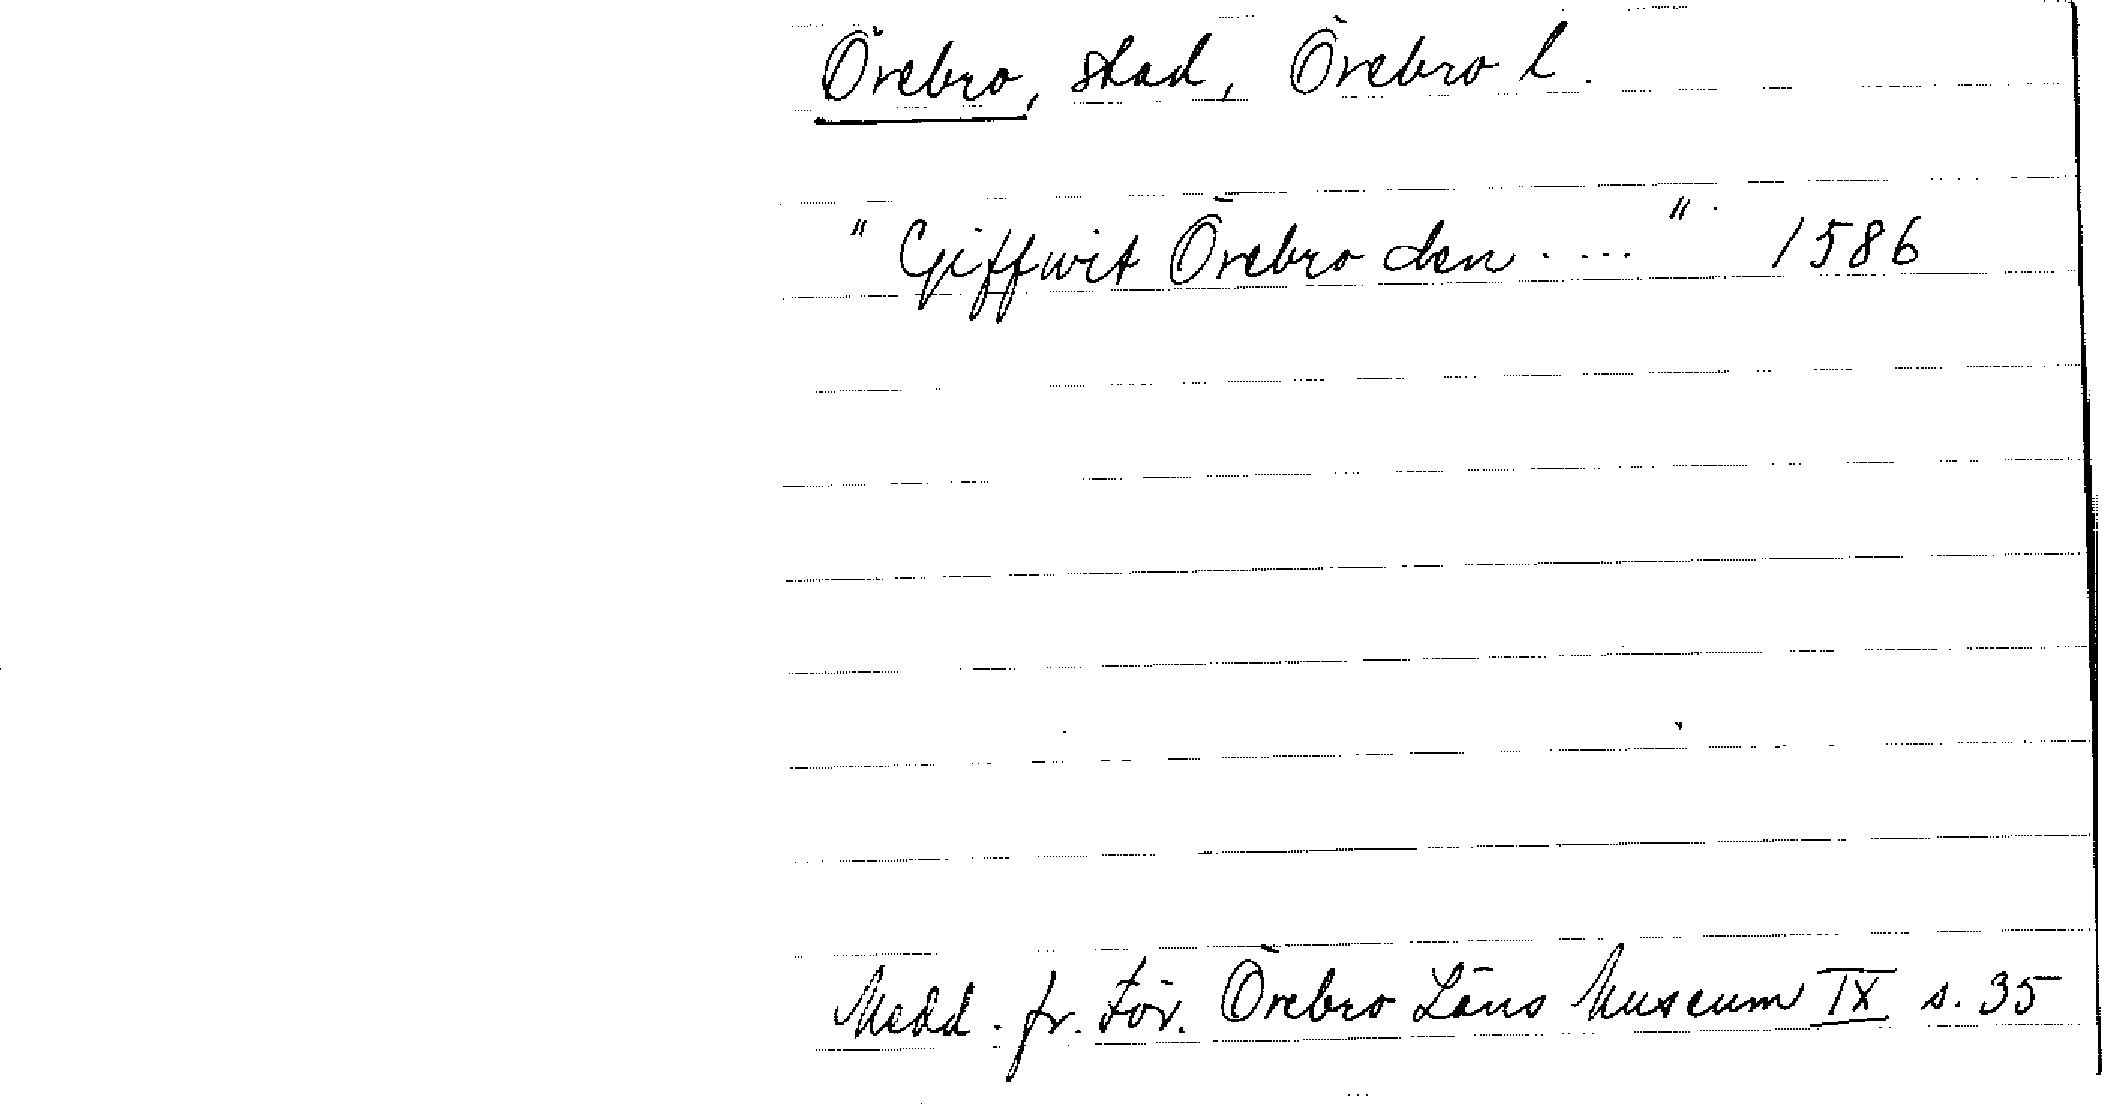 Örebro, stad, Örebro l.
"Giffwit Örebro den ...." 1586
Medd. fr. För. Örebro Läns Museum IX s. 35